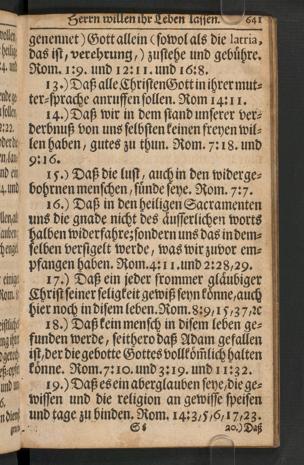 Herrn willen ihr Leben lassen. 641
genennet) Gott allein (sowol als die latria,
das ist, verehrung,) zustehe und gebühre.
Rom. 1:9. und 12:11. und 16:8.
13.) Daß alle Christen Gott in ihrer mut-
ter-sprache anruffen sollen. Rom 14:11.
14.) Daß wir in dem stand unserer ver-
derbnuß von uns selbsten keinen freyen wil-
len haben, gutes zu thun. Rom. 7:18. und
9:16.
15.) Daß die lust, auch in den widerge-
bohrnen menschen, sünde seye. Rom. 7:7.
16.) Daß in den heiligen Sacramenten
uns die gnade nicht des äusserlichen worts
halben widerfahre; sondern uns das in dem-
selben versigelt werde, was wir zuvor em-
pfangen haben. Rom. 4:11. und 2:28,29.
17.) Daß ein jeder frommer gläubiger
Christ seiner seligkeit gewiß seyn könne, auch
hier noch in disem leben. Rom. 8:9,15,37,2c
18.) Daß kein mensch in disem leben ge-
funden werde, seithero daß Adam gefallen
ist, der die gebotte Gottes vollköm̃lich halten
könne. Rom. 7:10. und 3:19. und 11:32.
19.) Daß es ein aberglauben seye, die ge-
wissen und die religion an gewisse speisen
und tage zu binden. Rom. 14:3,5,6,17,23.
20.) Daß